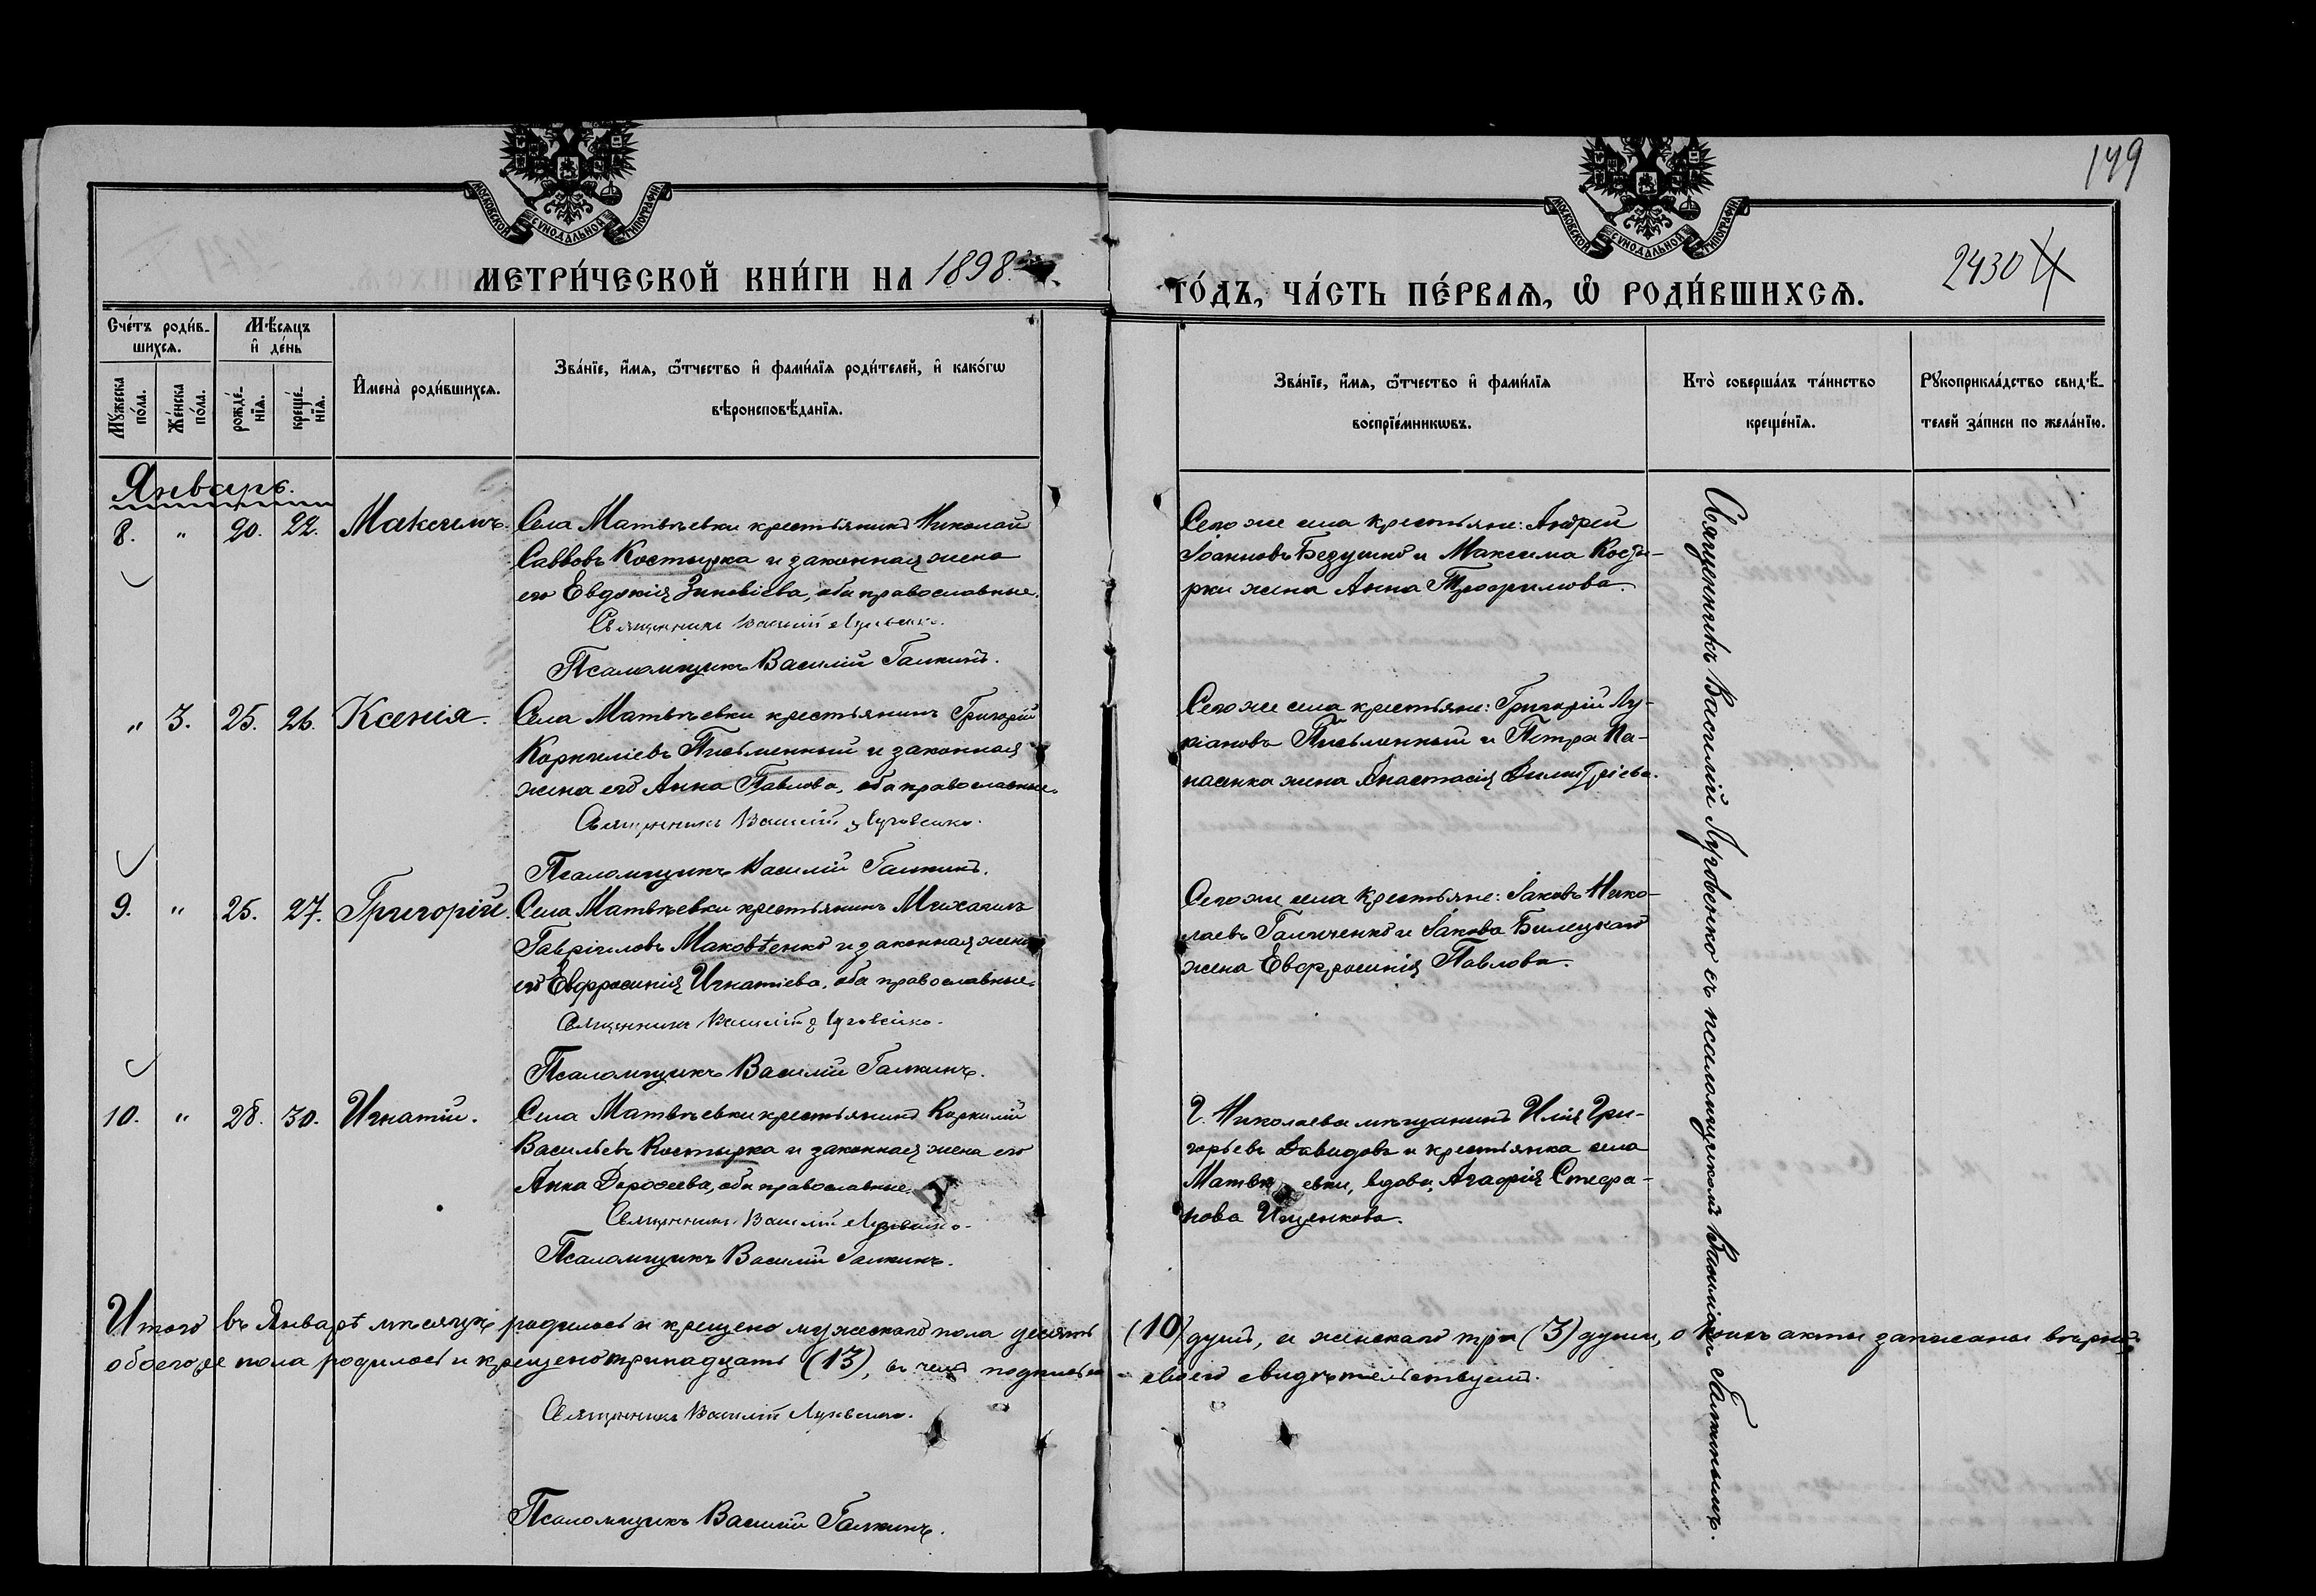 149
МОСКОВСКОЙ СѴНОДАЛЬНОЙ ТИПОГРАФІИ
МОСКОВСКОЙ СѴНОДАЛЬНОЙ ТИПОГРАФІИ
МЕТРИ́ЧЕСКОЙ КНИ́ГИ НА 1898
ГО́ДЪ, ЧА́СТЬ ПЕ́РВАѦ, Ѽ РОДИ́ВШИХСѦ.
2430
Сче́тъ роди́в-
шихсѧ.
Мѣ́сѧцъ
и҆ де́нь
Мꙋ́жеска
по́ла.
Же́нска
по́ла.
рожде́-
нїѧ.
креще́-
нїѧ.
И҆мена̀ роди́вшихсѧ.
Зва́нїе, и҆́мѧ, ѻ҆́тчество и҆ фами́лїѧ роди́телей, и҆ како́гѡ
вѣроисповѣ́данїѧ.
Зва́нїе, и҆́мѧ, ѻ҆́тчество и҆ фами́лїѧ
воспрїе́мникѡвъ.
Кто̀ соверша́лъ та́инство
креще́нїѧ.
Рꙋкоприкла́дство свидѣ́-
телей за́писи по жела́нїю.
Январь.
8. " 20. 22. Максимъ.
Села Матвѣевки крестьянинъ Николай
Саввовъ Костырка и законная жена
его Евдокія Зиновіева, оба православные.
Священникъ Василій Луговенко.
Псаломщикъ Василій Галкинъ.
Сего же села крестьяне: Андрей
Іоанновъ Бездушко и Максима Косты-
рки жена Анна Трофимова.
" 3. 25. 26. Ксенія.
Села Матвѣевки крестьянинъ Григорій
Корниліевъ Письменный и законная
жена его Анна Павлова, оба православные.
Священникъ Василій Луговенко.
Псаломщикъ Василій Галкинъ.
Сего же села крестьяне: Григорій Лу-
кіановъ Письменный и Петра Па-
насенка жена Анастасія Димитріева.
9. " 25. 27. Григорій.
Села Матвѣевки крестьянинъ Михаилъ
Гавріиловъ Маковѣенко и законная жена
его Евфросинія Игнатіева, оба православные.
Священникъ Василій Луговенко.
Псаломщикъ Василій Галкинъ.
Сего же села крестьяне: Іаковъ Нико-
лаевъ Галиченко и Іакова Билецкаго
жена Евфросинія Павлова.
10. " 28. 30. Игнатій.
Села Матвѣевки крестьянинъ Корнилій
Васильевъ Костырка и законная жена его
Анна Дороѳеева, оба православные.
Священникъ Василій Луговенко.
Псаломщикъ Василій Галкинъ.
Г. Николаева мѣщанинъ Илія Гри-
горьевъ Давидовъ и крестьянка села
Матвѣевки, вдова, Агафія Стефа-
нова Ищенкова.
Священникъ Василій Луговенко съ псаломщикомъ Василіемъ Галкинымъ.
Итого въ Январѣ мѣсяцѣ родилось и крещено мужескаго пола десять (10) душъ, а женскаго три (3) души, о коихъ акты записаны вѣрно,
обоего же пола родилось и крещено тринадцать (13), въ чемъ подписью своею свидѣтельствуемъ.
Священникъ Василій Луговенко.
Псаломщикъ Василій Галкинъ.